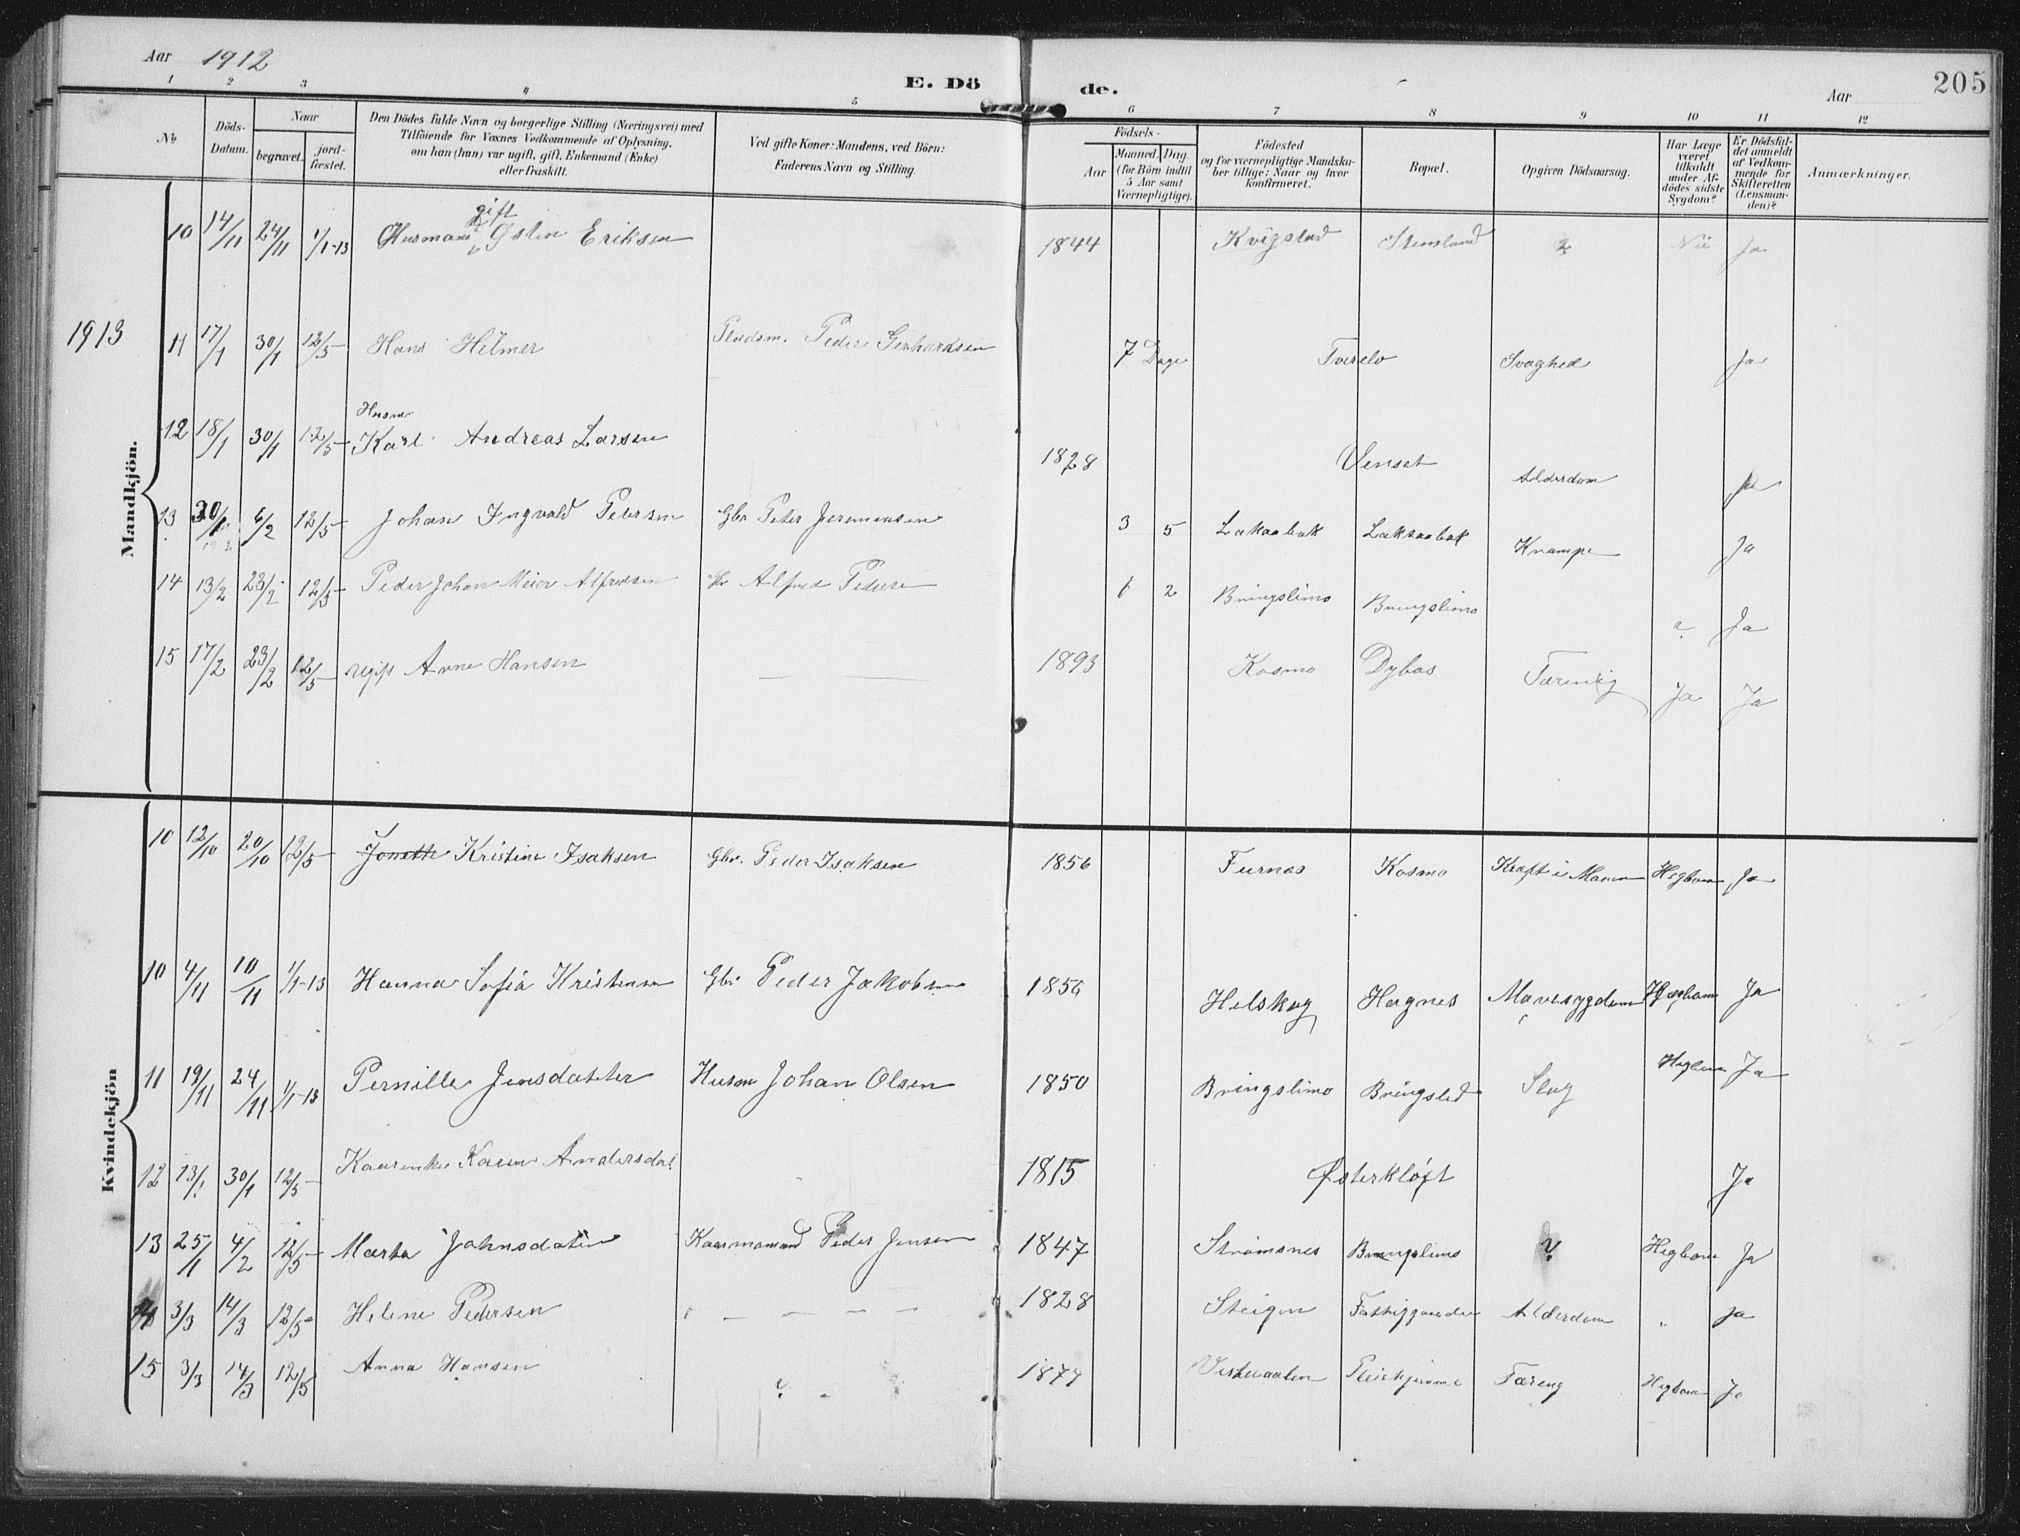 Aar 1912 E. Dö de. Aar 205
1 2 3 4 5 6 7 8 9 10 11 12
No
Döds-Datum.
Naar
begravet.
jord-fæstet.
Den Dödes fulde Navn og borgerlige Stilling (Næringsvei) med
Tilföiende for Voxnes Vedkommende af Oplysning,
om han (hun) var ugift, gift, Enkemand (Enke)
eller fraskilt.
Ved gifte Koner: Mandens, ved Börn:
Faderens Navn og Stilling.
Födsels-
Aar
Maaned. Dag.
(for Börn indtil
5 Aar samt
Værnepligtige).
Födested
og for værnepligtige Mandska-
ber tillige: Naar og hvor
konfirmeret.
Bopæl.
Opgiven Dödsaarsag.
Har Læge
været
tilkaldt
under Af-
dödes sidste
Sygdom?
Er Dödsfal-
det anmeldt
af Vedkom-
mende for
Skifteretten
(Lensman-
den)?
Anmærkninger.
Mandkjön.
gift
10 14/11 24/11 1/1-13 Husmand Østen Eriksen 1844 Kvigstad Stensland ? Nei Ja
1913
11 17/1 30/1 12/5 Hans Helmer Pladsm. Peder Gerhardsen 7 Dage Tverelv Svaghed Ja
Husm.
12 18/1 30/1 12/5 Karl Andreas Larsen 1828 Venset Alderdom Ja
13 30/1 6/2 12/5 Johan Ingvald Petersen Gbr Peter Jeremiasen 3 5 Laksaabak Krampe Ja
14 13/2 23/2 12/5 Peder Johan Meier Alfredsen Alfred Pedersen 6 2 Bringslimo Bringslimo ? Ja
15 17/2 23/2 12/5 ugift Arne Hansen — 1893 Kosmo Dybas Tæring Ja Ja
Kvindekjön
10 12/10 20/10 12/5 Jonette Kristine Isaksen Gbr. Peder Isaksen 1856 Furnes Kosmo Kræft i Maven Hegbom Ja
10 4/11 10/11 1/1-13 Hanna Sofie Kristensen Gbr Peder Jakobsen 1856 Helskog Hognes Mavesygdom Hegbom Ja
11 19/11 24/11 1/1-13 Pernille Jensdatter Husm Johan Olsen 1850 Bringslimo Bringsled Slag Hegbom Ja
12 13/1 30/1 12/5 Karen Andersdat. 1815 Østerkløft Ja
13 25/1 4/2 12/5 Marta Johnsdatter Kaarmand Peder Jensen 1847 Strømsnes Bringslimo ? Hegbom Ja
14 3/3 14/3 12/5 Helene Pedersen " — — — — 1828 Steigen Alderdom " Ja
15 3/3 14/3 12/5 Anna Hansen ? " Tæring Hegbom Ja